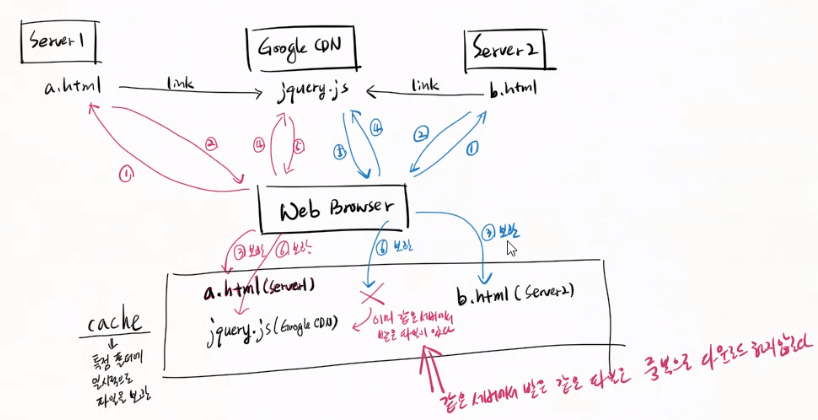 Server1
Google CDN
Server2
a.html
link
jquery.js
link
b.html
①
②
④
⑤
③
④
②
①
Web Browser
③ 보관
⑥ 보관
⑥ 보관
③ 보관
a.html (Server1)
b.html (Server2)
jquery.js (Google CDN)
이미 같은 서버에서
받은 파일이 있다
cache
특정 폴더에
일시적으로
파일을 보관
같은 서버에서 받은 같은 파일은 중복으로 다운로드 하지 않는다